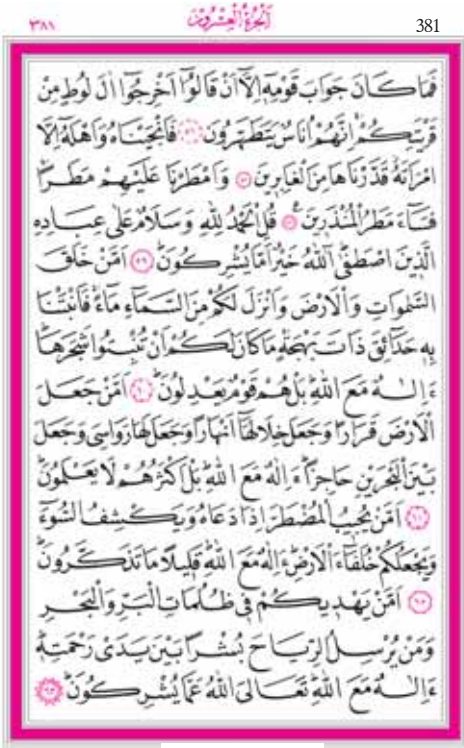 ٣٨١ اَلْجُزْءُ الْعِشْرُونَ 381
فَمَا كَانَ جَوَابَ قَوْمِهٖٓ اِلَّٓا اَنْ قَالُٓوا اَخْرِجُٓوا اٰلَ لُوطٍ مِنْ
قَرْيَتِكُمْ اِنَّهُمْ اُنَاسٌ يَتَطَهَّرُونَ ﴿٥٦﴾ فَاَنْجَيْنَاهُ وَاَهْلَهُٓ اِلَّا
امْرَاَتَهُ قَدَّرْنَاهَا مِنَ الْغَابِرٖينَ ﴿٥٧﴾ وَاَمْطَرْنَا عَلَيْهِمْ مَطَرًا
فَسَٓاءَ مَطَرُ الْمُنْذَرٖينَ ﴿٥٨﴾ قُلِ الْحَمْدُ لِلّٰهِ وَسَلَامٌ عَلٰى عِبَادِهِ
الَّذٖينَ اصْطَفٰى آٰللّٰهُ خَيْرٌ اَمَّا يُشْرِكُونَ ﴿٥٩﴾ اَمَّنْ خَلَقَ
السَّمٰوَاتِ وَالْاَرْضَ وَاَنْزَلَ لَكُمْ مِنَ السَّمَٓاءِ مَٓاءً فَاَنْبَتْنَا
بِهٖ حَدَٓائِقَ ذَاتَ بَهْجَةٍ مَا كَانَ لَكُمْ اَنْ تُنْبِتُوا شَجَرَهَا
ءَاِلٰهٌ مَعَ اللّٰهِ بَلْ هُمْ قَوْمٌ يَعْدِلُونَ ﴿٦٠﴾ اَمَّنْ جَعَلَ
الْاَرْضَ قَرَارًا وَجَعَلَ خِلَالَهَٓا اَنْهَارًا وَجَعَلَ لَهَا رَوَاسِيَ وَجَعَلَ
بَيْنَ الْبَحْرَيْنِ حَاجِزًا ءَاِلٰهٌ مَعَ اللّٰهِ بَلْ اَكْثَرُهُمْ لَا يَعْلَمُونَ
﴿٦١﴾ اَمَّنْ يُجٖيبُ الْمُضْطَرَّ اِذَا دَعَاهُ وَيَكْشِفُ السُّٓوءَ
وَيَجْعَلُكُمْ خُلَفَٓاءَ الْاَرْضِ ءَاِلٰهٌ مَعَ اللّٰهِ قَلٖيلًا مَا تَذَكَّرُونَ
﴿٦٢﴾ اَمَّنْ يَهْدٖيكُمْ فٖي ظُلُمَاتِ الْبَرِّ وَالْبَحْرِ
وَمَنْ يُرْسِلُ الرِّيَاحَ بُشْرًا بَيْنَ يَدَيْ رَحْمَتِهٖ
ءَاِلٰهٌ مَعَ اللّٰهِ تَعَالَى اللّٰهُ عَمَّا يُشْرِكُونَ ﴿٦٣﴾